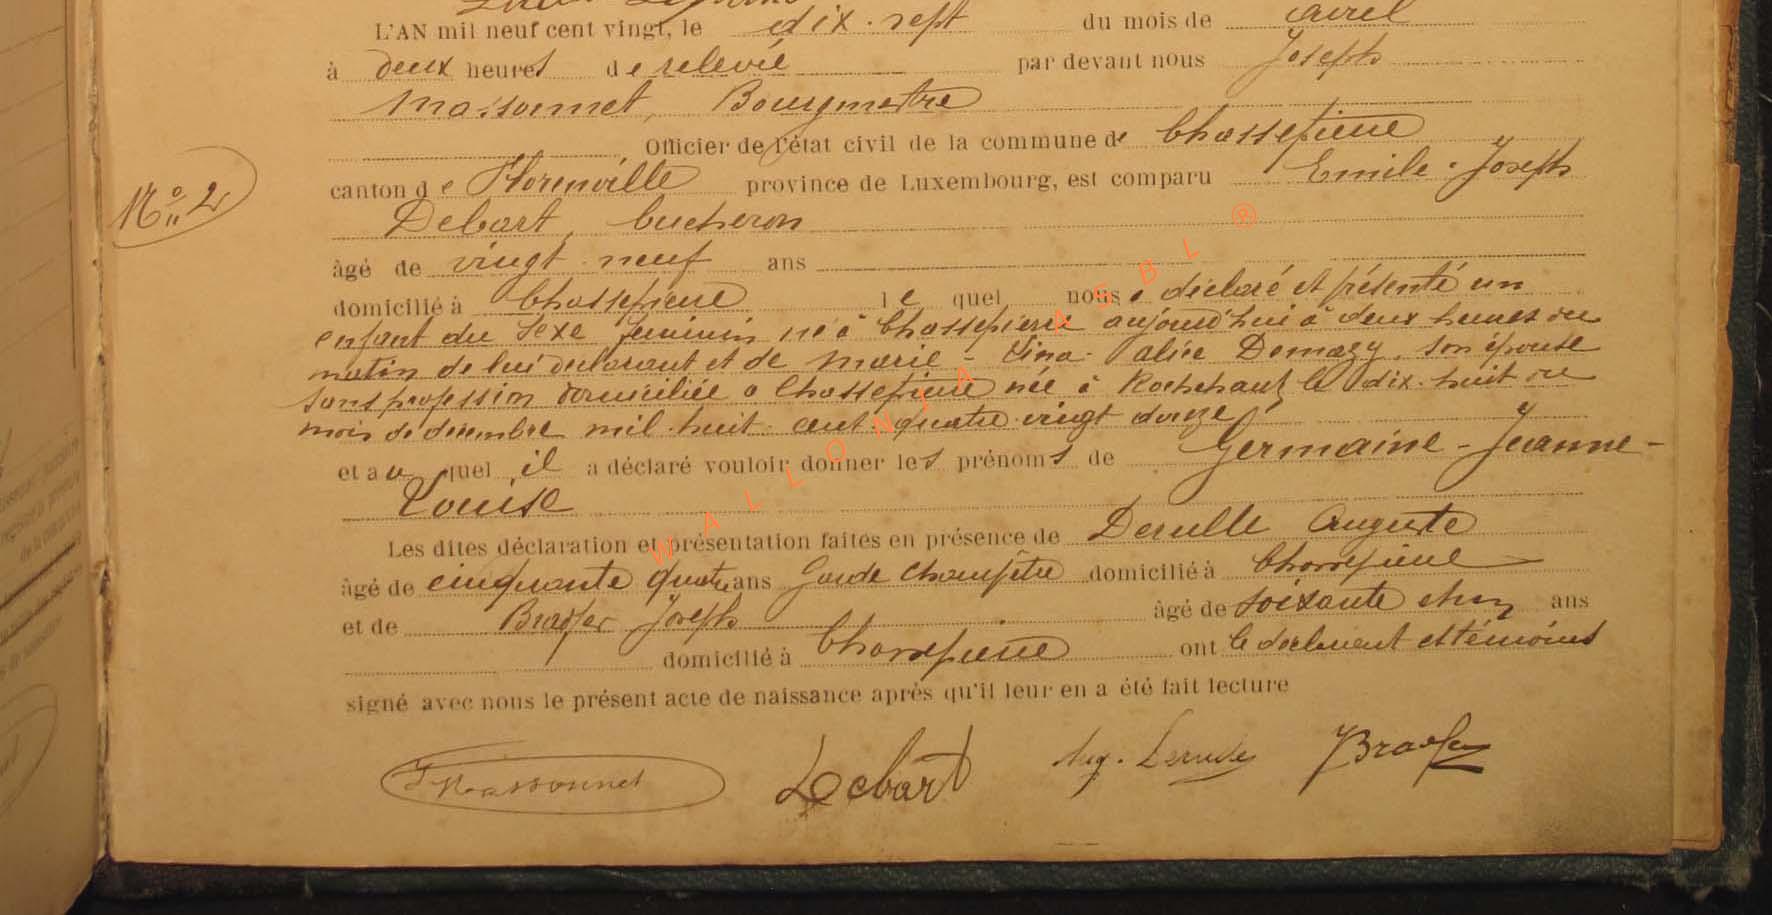 L'AN mil neuf cent vingt, le dix-sept du mois de avril
à deux heures de relevée par devant nous Joseph
Massonnet, Bourgmestre
Officier de l'état civil de la commune de Chassepierre
N° 2
canton de Florenville province de Luxembourg, est comparu Emile-Joseph
Debart, bucheron
âgé de vingt-neuf ans
domicilié à Chassepierre lequel nous a déclaré et présenté un
enfant du sexe feminin né à Chassepierre aujourd'hui à deux heures du
matin de lui déclarant et de Marie - Lina - Alice Demazy, son épouse
sans profession domiciliée à Chassepierre née à Rochehaut le dix-huit du
mois de décembre mil-huit-cent-quatre-vingt douze
et auquel il a déclaré vouloir donner les prénoms de Germaine-Jeanne-
Louise
Les dites déclaration et présentation faites en présence de Derulle Auguste
âgé de cinquante quatre ans Garde Champêtre domicilié à Chassepierre
et de Joseph âgé de soixante cinq ans
domicilié à Chassepierre ont le déclarant et témoins
signé avec nous le présent acte de naissance après qu'il leur en a été fait lecture
J Massonnet Debart Aug. Derulle
WALLONIA ASBL ®